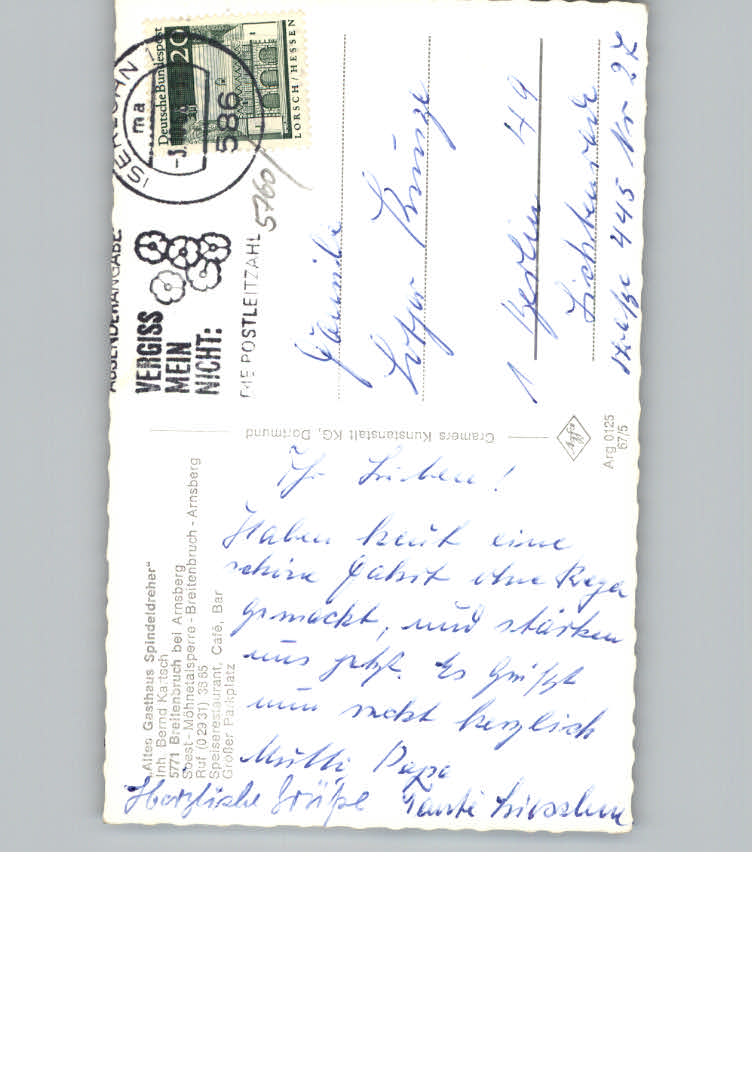 „Altes Gasthaus Spindeldreher"
Inh. Bernd Kaitsch
5771 Breitenbruch bei Arnsberg
Soest - Möhnetalsperre - Breitenbruch - Arnsberg
Ruf (02931) 3665
Speiserestaurant, Café, Bar
Großer Parkplatz
Ihr Lieben!
Haben heut eine
schöne Fahrt ohne Regen
gemacht, und stärken
uns jetzt. Es grüßt
nun recht herzlich
Mutti Papa
Herzliche Grüße Tante Lieschen
Cramers Kunstanstalt KG, Dortmund
Agfa
Arg 0125
67/5
ABSENDERANGABE:
VERGISS
MEIN
NICHT:
DIE POSTLEITZAHL
ISERLOHN 1
ma
586
Deutsche Bundespost
20
LORSCH/HESSEN
5760
Familie
Lothar Kunze
1 Berlin 49
Lichtenrade
Straße 445 Nr 27